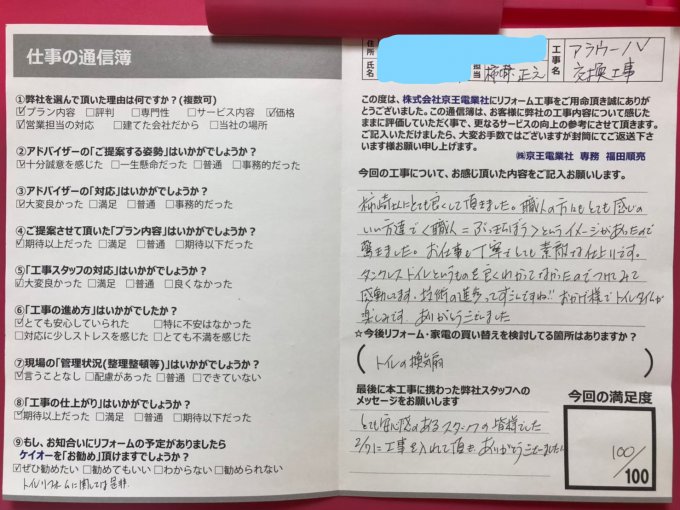 仕事の通信簿
①弊社を選んで頂いた理由は何ですか?(複数可)
☑プラン内容 □評判 □専門性 □サービス内容 ☑価格
☑営業担当の対応 □建てた会社だから □当社の場所
②アドバイザーの「ご提案する姿勢」はいかがでしょうか?
☑十分誠意を感じた □一生懸命だった □普通 □事務的だった
③アドバイザーの「対応」はいかがでしょうか?
☑大変良かった □満足 □普通 □事務的だった
④ご提案させて頂いた「プラン内容」はいかがでしょうか?
☑期待以上だった □満足 □普通 □期待以下だった
⑤「工事スタッフの対応」はいかがでしょうか?
☑大変良かった □満足 □普通 □良くなかった
⑥「工事の進め方」はいかがでしたか?
☑とても安心していられた □特に不安はなかった
□対応に少しストレスを感じた □とても不満を感じた
⑦現場の「管理状況(整理整頓等)」はいかがでしょうか?
☑言うことなし □配慮があった □普通 □できていない
⑧「工事の仕上がり」はいかがでしょうか?
☑期待以上だった □満足 □普通 □期待以下だった
⑨もし、お知合いにリフォームの予定がありましたら
ケイオーを「お勧め」頂けますでしょうか?
☑ぜひ勧めたい □勧めてもいい □わからない □勧められない
トイレリフォームに関しては是非
住所
氏名
担当
柿崎 正之
工事名
アラウーノV
交換工事
この度は、株式会社京王電業社にリフォーム工事をご用命頂き誠にありが
とうございました。この通信簿は、お客様に弊社の工事内容について感じた
ままに評価していただく事で、更なるサービスの向上の参考にさせて頂きます。
ご記入いただけましたら、大変お手数ではございますが封筒にてご返送下さ
います様お願い申し上げます。
㈱京王電業社 専務 福田順亮
今回の工事について、お感じ頂いた内容をご記入お願いします。
柿崎さんにとても良くして頂きました。職人の方にもとても感じの
いい方達で<職人=ぶっきらぼう>というイメージがあったので
驚きました。お仕事も丁寧でとても素敵な仕上りです。
タンクレストイレというものを良くわかってなかったのでつけてみて
感動してます。技術の進歩ってすごいんですね!! おかげ様でトイレタイムが
楽しみです。ありがとうございました
☆今後リフォーム・家電の買い替えを検討してる箇所はありますか?
(トイレの換気扇)
最後に本工事に携わった弊社スタッフへの
メッセージをお願いします
とても安心感のあるスタッフの皆様でした
2/7に工事を入れて頂き、ありがとうございました!
今回の満足度
100/100